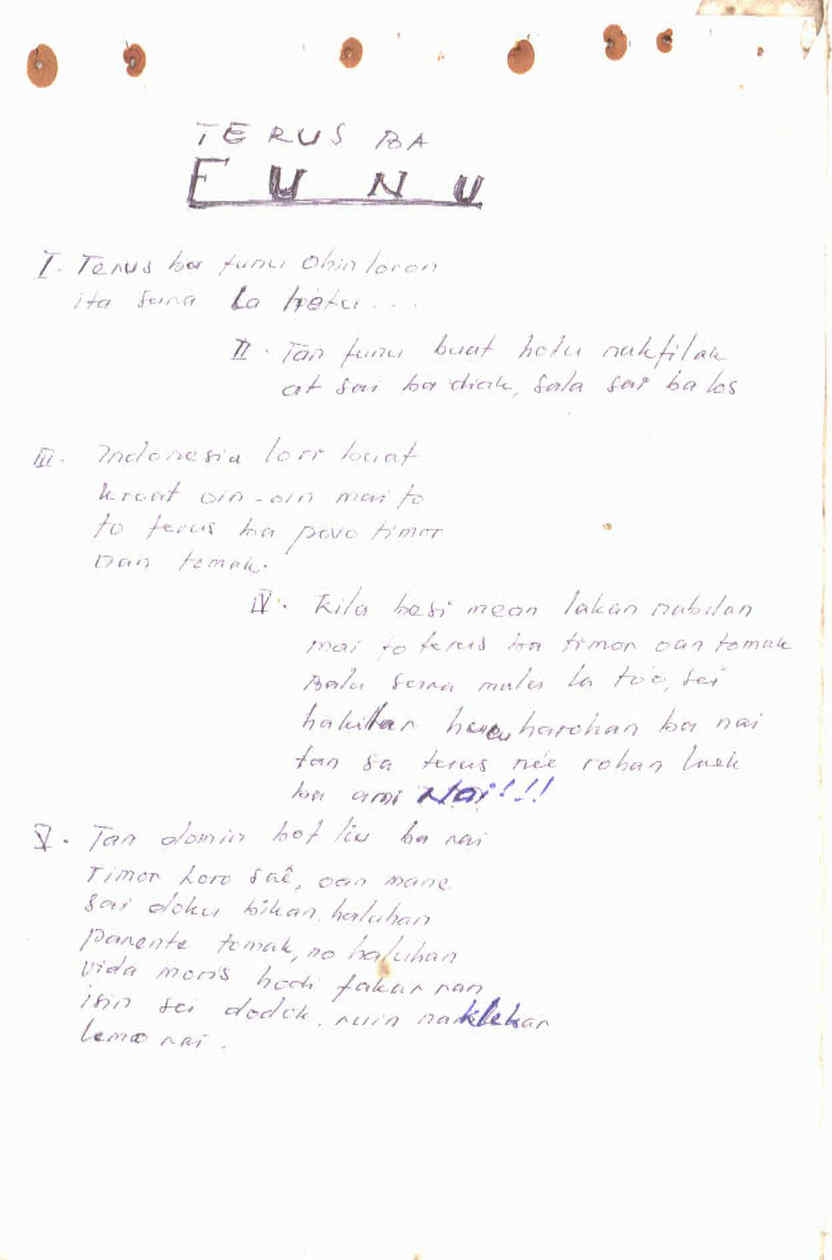 TERUS BA
FUNU
I. Terus ba funu Ohin loron
ita sura la hetu...
II. Tan funu buat hotu nakfilak
at sai ba diak, sala sai ba los
III. Indonesia lori buat
kroat oin-oin mai to
to terus ba povo timor
oan tomak.
IV. Kila besi mean lakan nabilan
mai to terus ba timor oan tomak
Balu sura mulu la to'o, sei
hakilar harohan ba nai
tan sa terus née rohan laek
ba ami Nai!!!
V. Tan domin bot liu ba rai
Timor Loro Saê, oan mane
sai doku bikan, haluhan
parente tomak, no haluhan
vida moris hodi fakar ran
isin sei dodok, ruin naklekar
lemo rai.